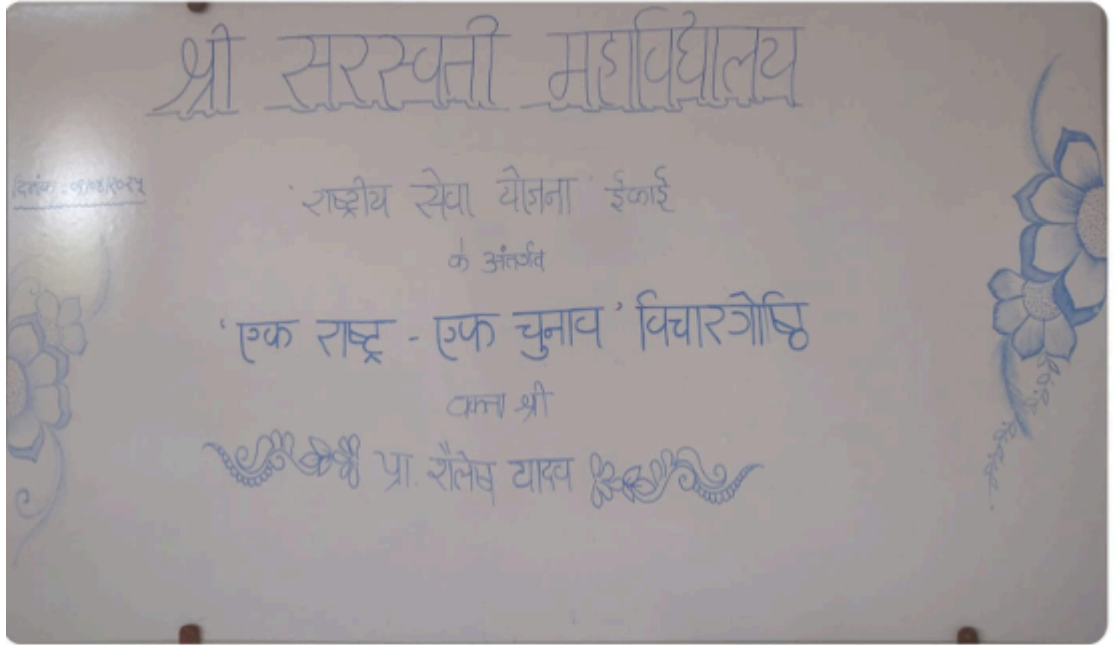 श्री सरस्वती महाविद्यालय
दिनांक :
राष्ट्रीय सेवा योजना ईकाई
के अंतर्गत
'एक राष्ट्र - एक चुनाव' विचारगोष्ठि
वक्ता श्री
प्रा. शैलेष यादव